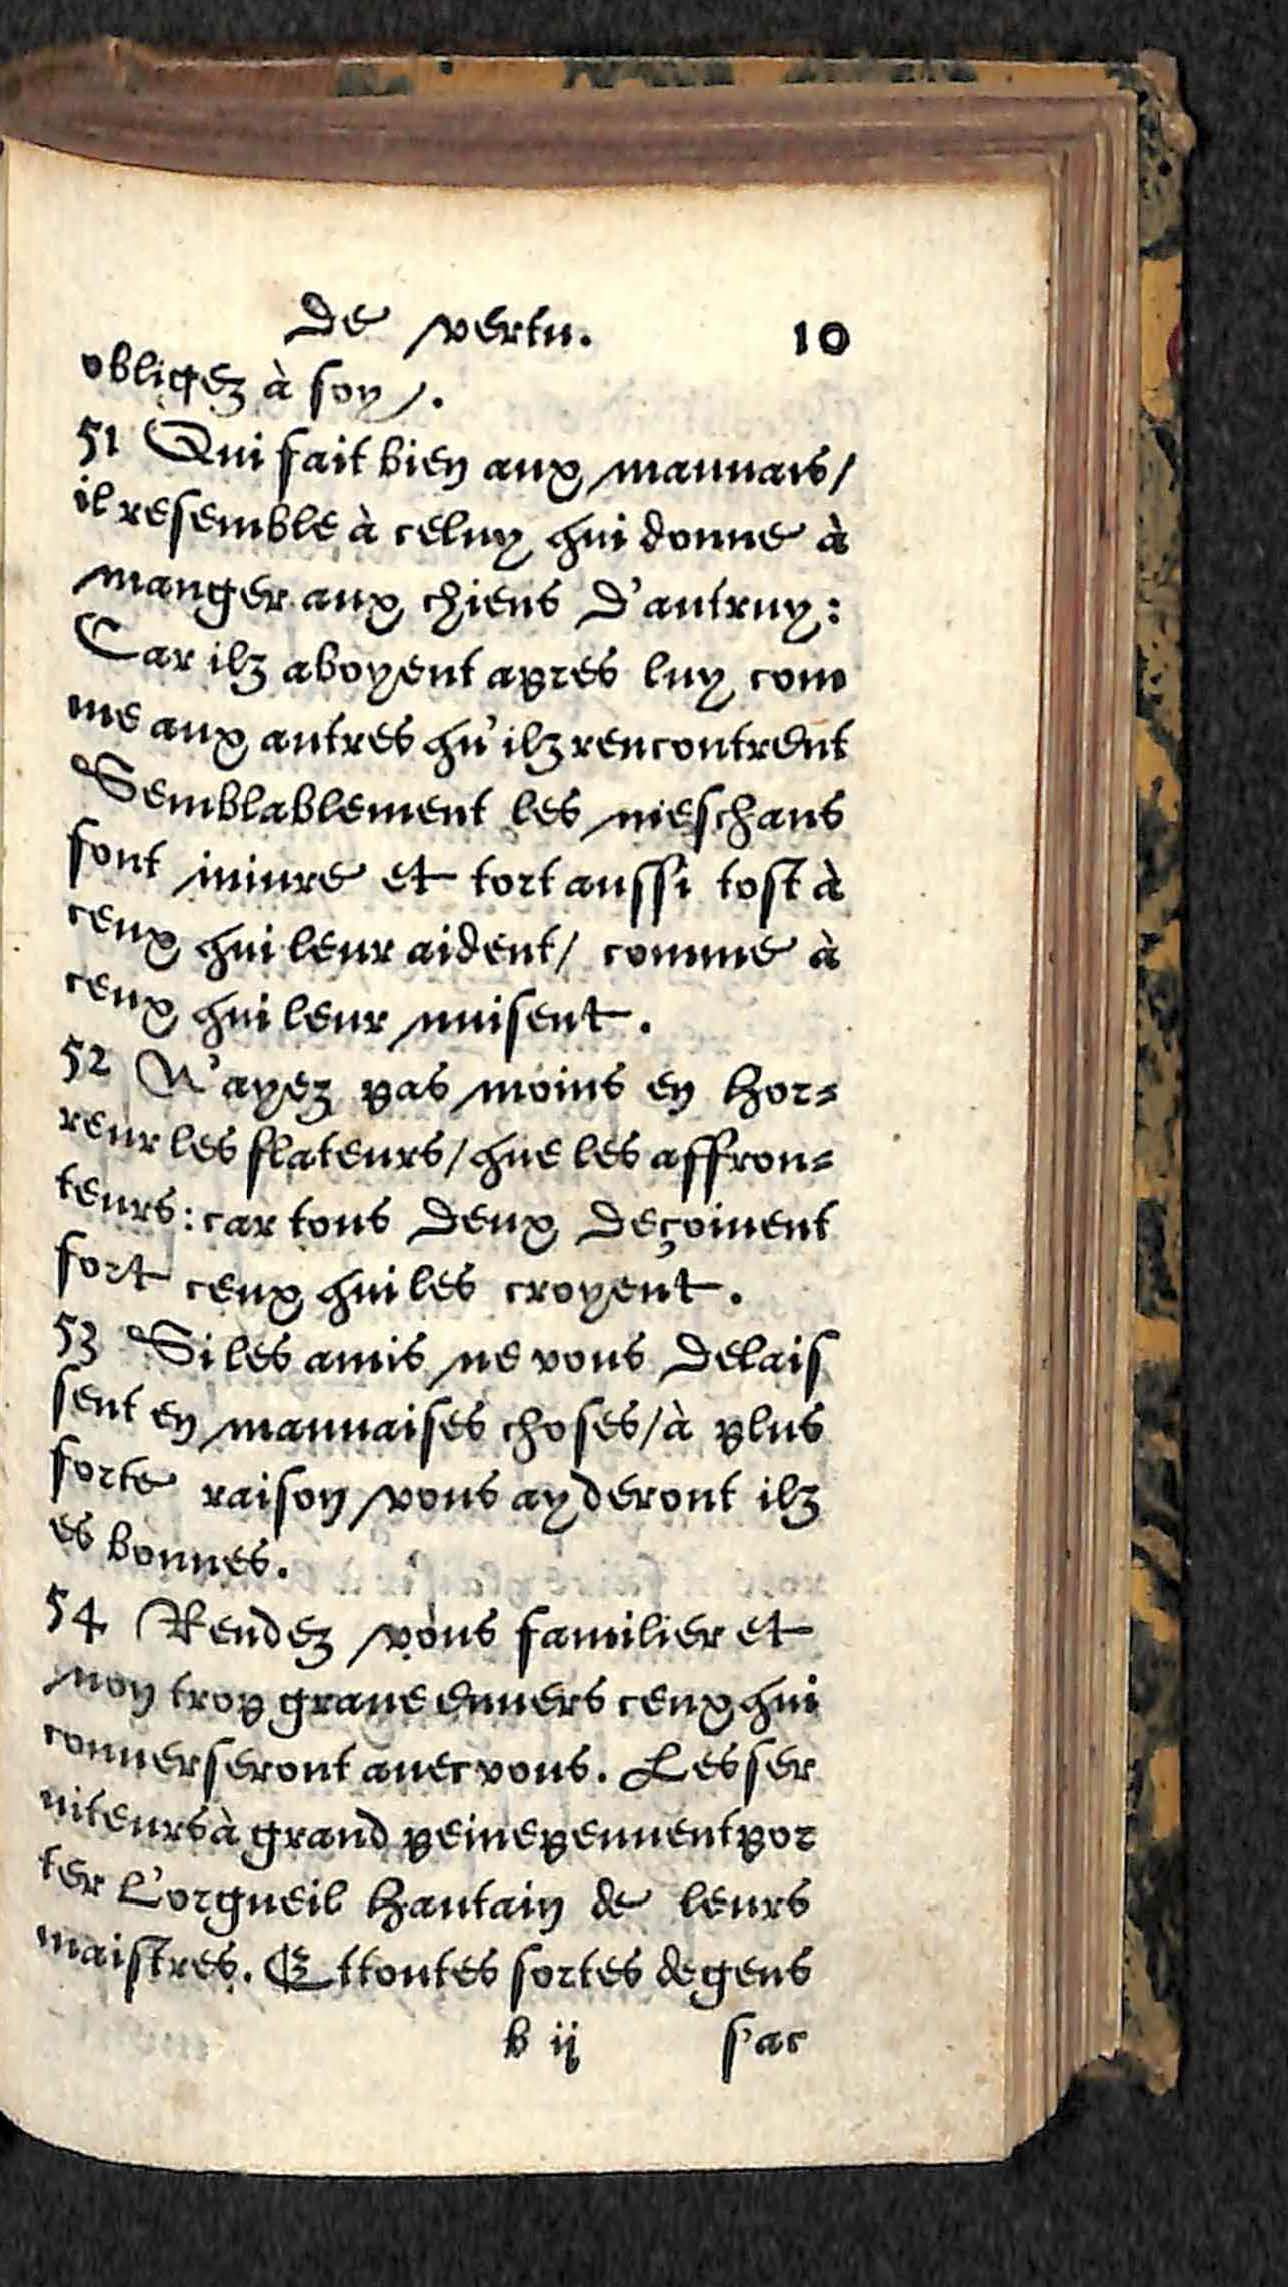 de vertu. 10
obligez à soy.
51 Qui fait bien aux mauuais/
il resemble à celuy qui donne à
manger aux chiens d'autruy:
Car ilz aboyent apres luy com
me aux autres qu'ilz rencontrent
Semblablement les meschans
font iniure et tort aussi tost à
ceux qui leur aident/ comme à
ceux qui leur nuisent.
52 N'ayez pas moins en hor-
reur les flateurs/ que les affron-
teurs: car tous deux deçoiuent
fort ceux qui les croyent.
53 Si les amis ne vous delais
sent en mauuaises choses/ à plus
forte raison vous ayderont ilz
es bonnes.
54 Rendez vous familier et
non trop graue enuers ceux qui
conuerseront auec vous. Les ser
uiteurs à grand peine peuuent por
ter l'orgueil hautain de leurs
maistres. Et toutes sortes de gens
b ij s'ac